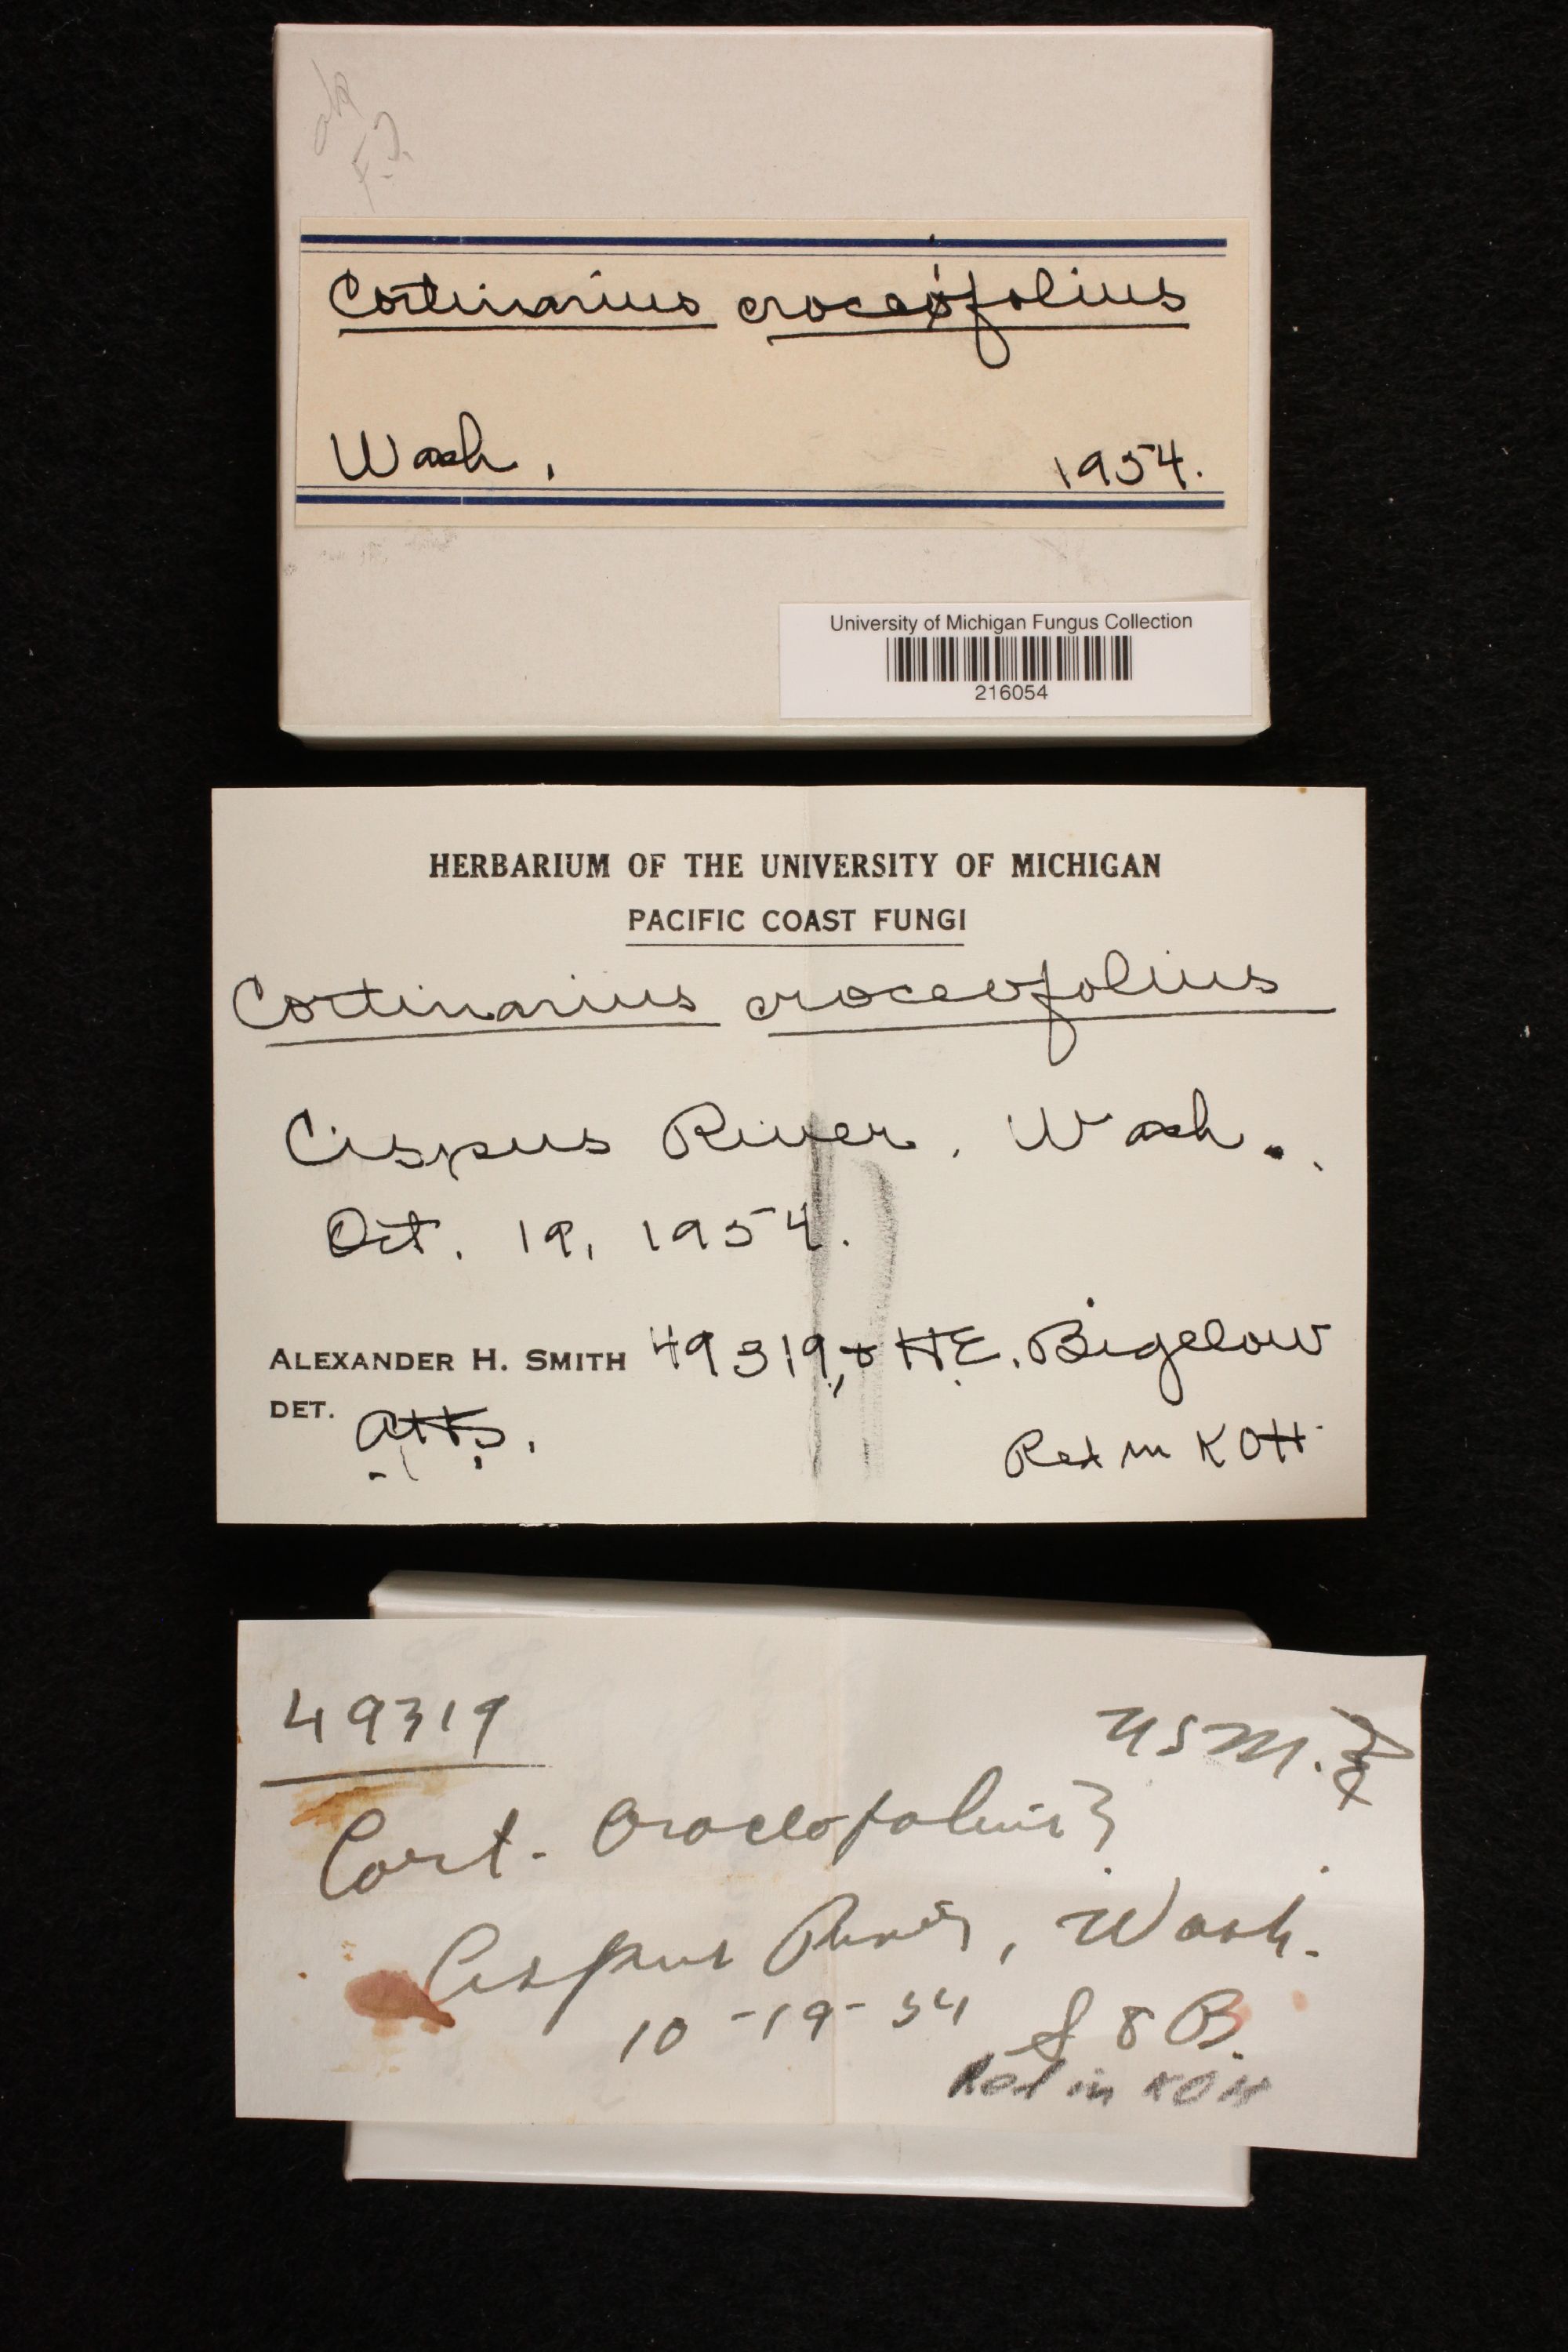 ok
F.S.
Cortinarius croceifolius
Wash. 1954.
University of Michigan Fungus Collection
216054
HERBARIUM OF THE UNIVERSITY OF MICHIGAN
PACIFIC COAST FUNGI
Cortinarius croceofolius
Cispus River, Wash.
Oct. 19, 1954.
ALEXANDER H. SMITH 49319, & H.E. Bigelow
DET. AHS.
Red in KOH
49319
Cort. croceofolius?
Cispus River, Wash.
10-19-54 S & B.
Red in KOH